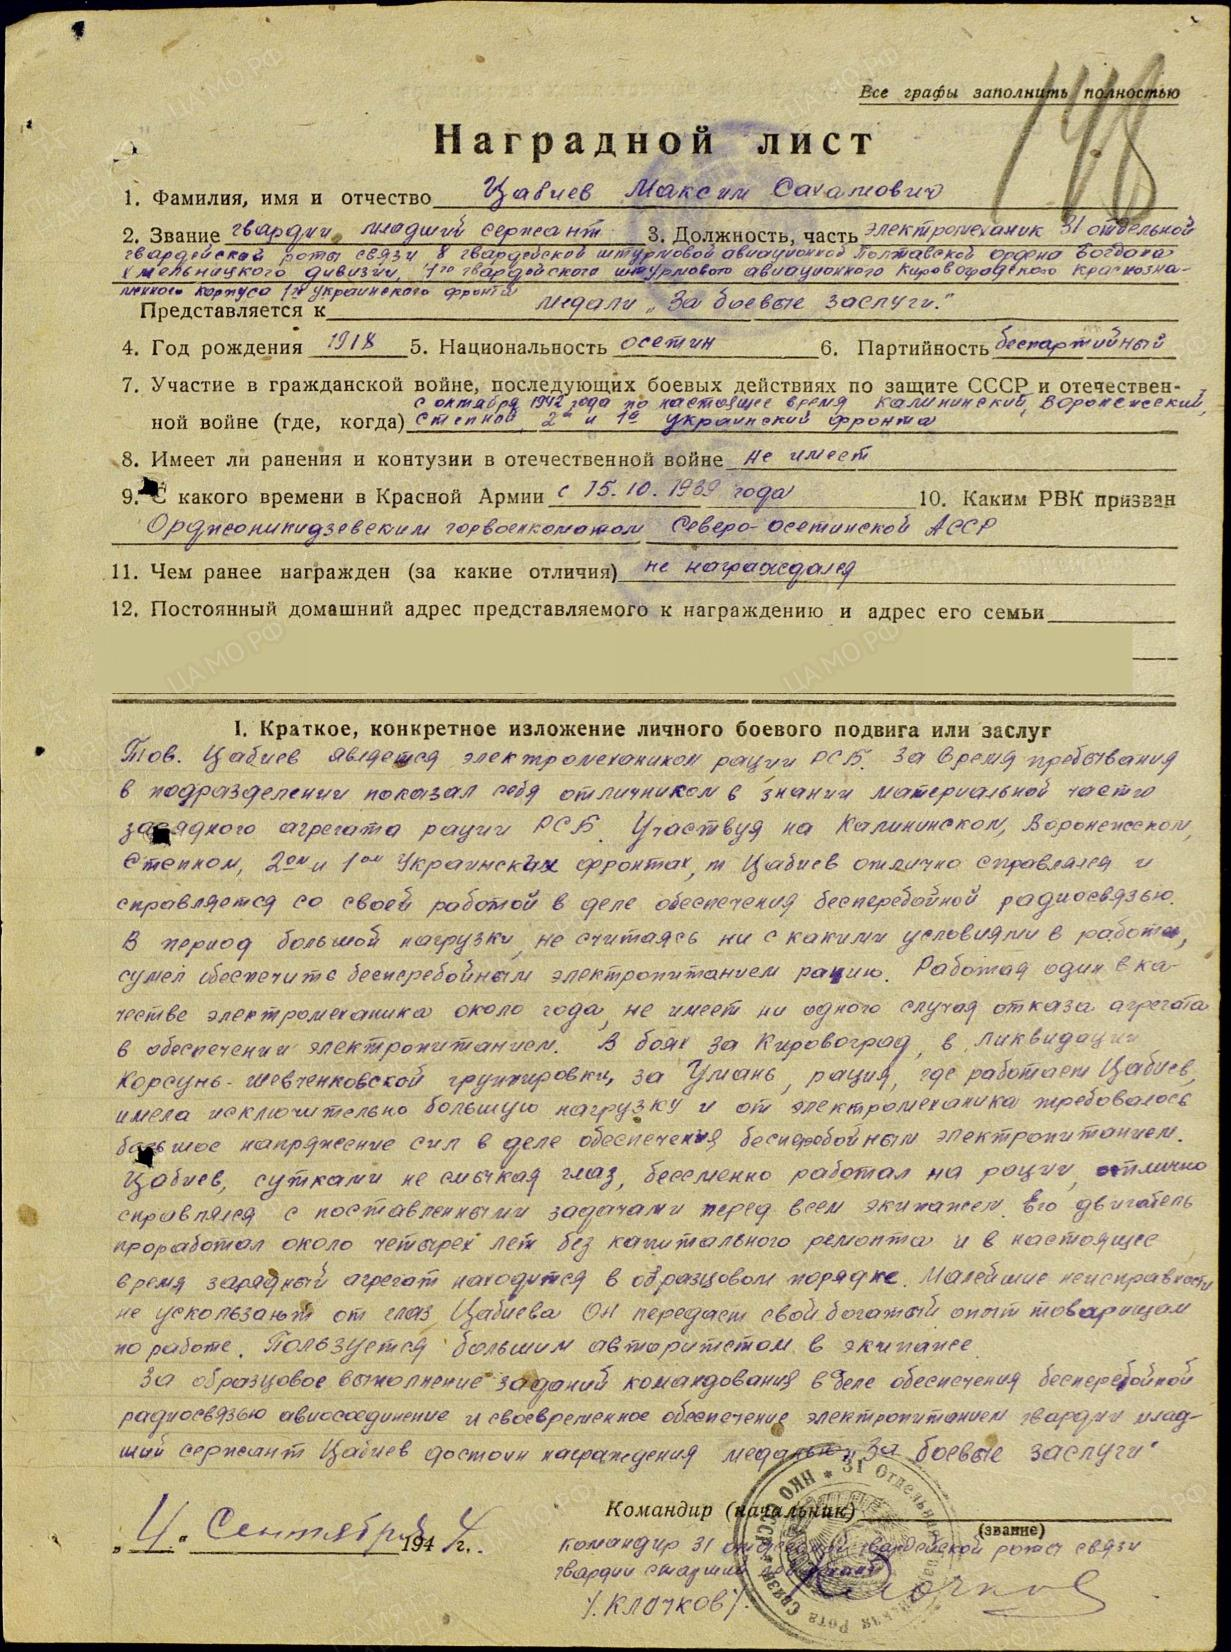 148
Все графы заполнить полностью
Наградной лист
1. Фамилия, имя и отчество Цабиев Максим Сахамович
2. Звание гвардии младший сержант 3. Должность, часть электромеханик 31 отдельной
гвардейской роты связи 8 гвардейской штурмовой авиационной Полтавской ордена Богдана
Хмельницкого дивизии, 1го гвардейского штурмового авиационного Кировоградского краснозна-
менного корпуса 1го украинского фронта
Представляется к медали „За боевые заслуги."
4. Год рождения 1918 5. Национальность осетин 6. Партийность беспартийный
7. Участие в гражданской войне, последующих боевых действиях по защите СССР и отечествен-
с октября 1942 года по настоящее время Калининский, Воронежский,
ной войне (где, когда) Степной, 2й и 1й украинский фронта
8. Имеет ли ранения и контузии в отечественной войне не имеет
9. С какого времени в Красной Армии с 15.10.1939 года 10. Каким РВК призван
Орджоникидзевским горвоенкоматом Северо-осетинской АССР
11. Чем ранее награжден (за какие отличия) не награждался
12. Постоянный домашний адрес представляемого к награждению и адрес его семьи
I. Краткое, конкретное изложение личного боевого подвига или заслуг
Тов. Цабиев является электромехаником рации РСБ. За время пребывания
в подразделении показал себя отличником в знании материальной части
зарядного агрегата рации РСБ. Участвуя на Калининском, Воронежском,
Степном, 2ом и 1ом Украинских фронтах, т Цабиев отлично справлялся и
справляется со своей работой в деле обеспечения бесперебойной радиосвязью.
В период большой нагрузки, не считаясь ни с какими условиями в работе,
сумел обеспечить бесперебойным электропитанием рацию. Работая один в ка-
честве электромеханика около года, не имеет ни одного случая отказа агрегата
в обеспечении электропитанием. В боях за Кировоград, в ликвидации
Корсунь-Шевченковской группировки, за Умань, рация, где работает Цабиев,
имела исключительно большую нагрузку и от электромеханика требовалось
большое напряжение сил в деле обеспечения бесперебойным электропитанием.
Цабиев, сутками не смыкая глаз, бессменно работал на рации, отлично
справлялся с поставленными задачами перед всем экипажем. Его двигатель
проработал около четырех лет без капитального ремонта и в настоящее
время зарядный агрегат находится в образцовом порядке. Малейшие неисправности
не ускользают от глаз Цабиева Он передает свой богатый опыт товарищам
по работе. Пользуется большим авторитетом в экипаже
За образцовое выполнение заданий командования в деле обеспечения бесперебойной
радиосвязью авиасоединение и своевременное обеспечение электропитанием гвардии млад-
ший сержант Цабиев достоин награждения медалью „За боевые заслуги"
Командир (начальник)
(звание)
„4" Сентября 1944 г.
командир 31 отдельной гвардейской роты связи
гвардии старший
/. Клочков /.